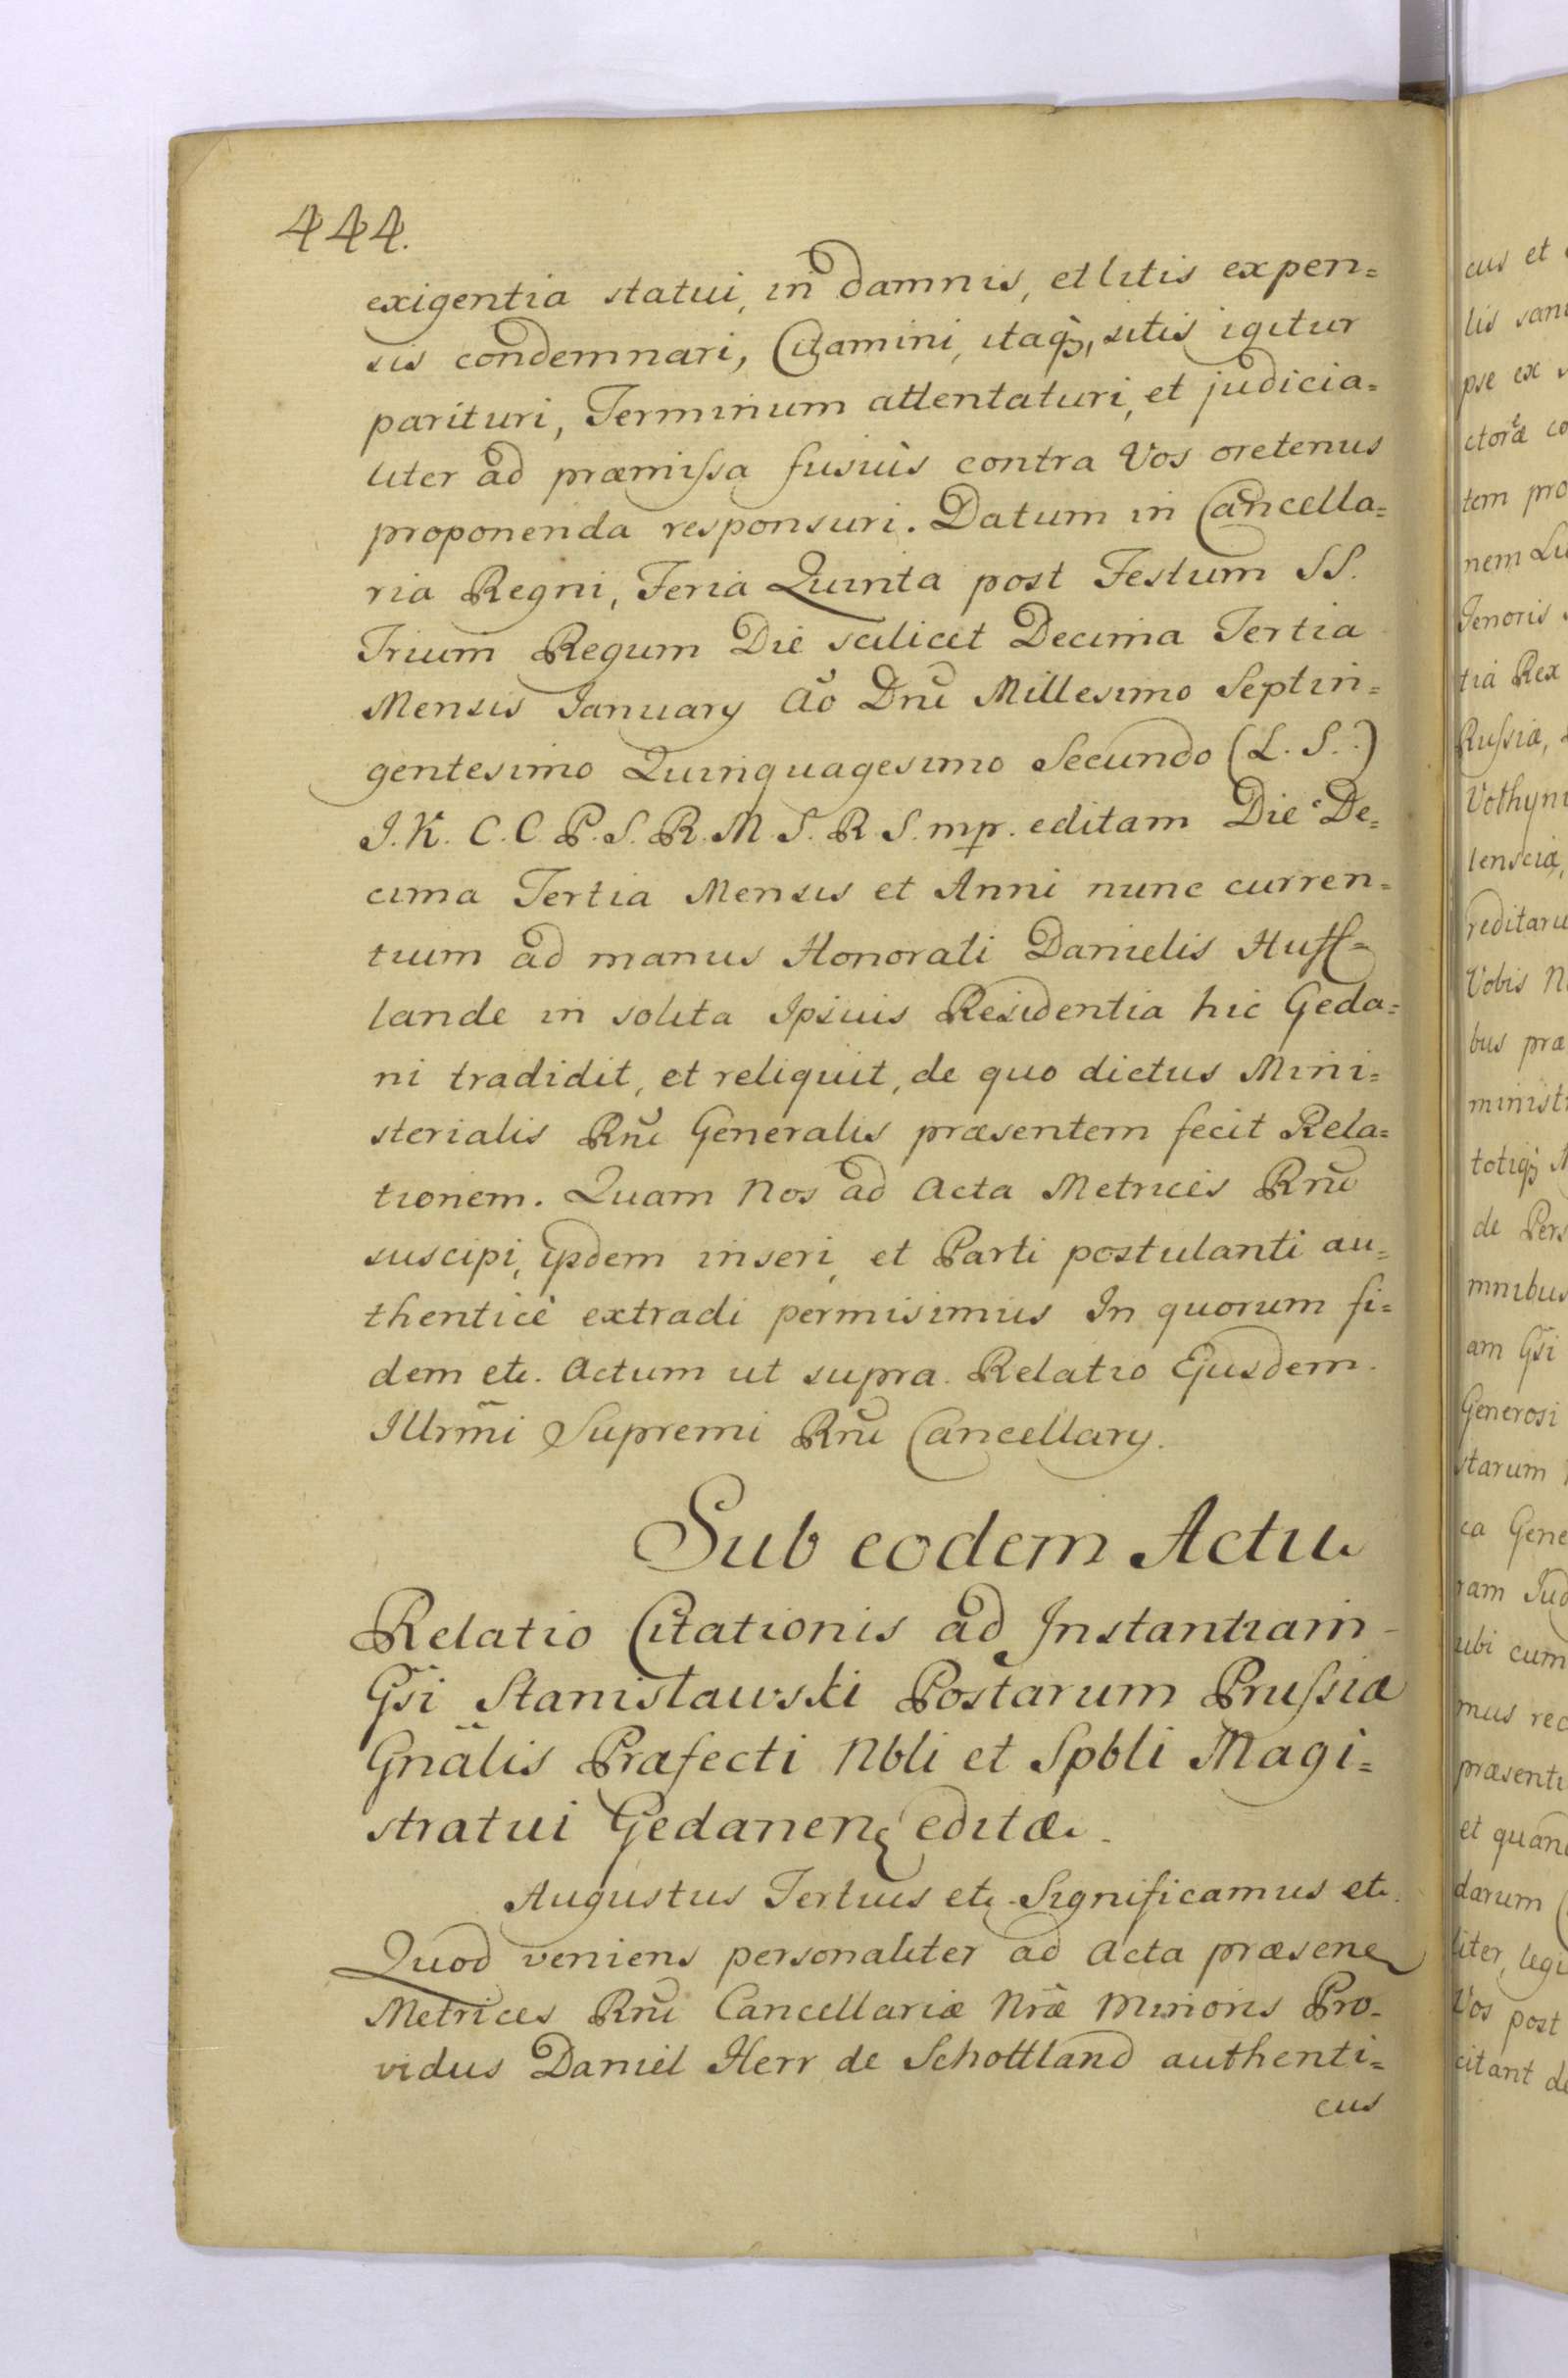 444.
exigentia statui, in damnis, et litis expen=
sis condemnari, Citamini, itaq₃, sitis igitur
parituri, Terminum attentaturi, et judicia=
liter ad præmissa fusiùs contra Vos oretenus
proponenda responsuri. Datum in Cancella=
ria Regni, Feria Quinta post Festum SS.
Trium Regum Die scilicet Decima Tertia
Mensis January Aō Dnī Millesimo Septin=
gentesimo Quinquagesimo Secundo (L. S.)
J. K. C. C. P. S. R. M. S. R. S. mp. editam Die De=
cima Tertia Mensis et Anni nunc curren=
tium ad manus Honorati Danielis Huff=
lande in solita Ipsius Residentia hic Geda=
ni tradidit, et reliquit, de quo dictus Mini=
sterialis Rnī Generalis præsentem fecit Rela=
tionem. Quam Nos ad Acta Metrices Rnī
suscipi, ijsdem inseri, et Parti postulanti au=
thenticè extradi permisimus In quorum fi=
dem etc. Actum ut supra. Relatio Ejusdem.
Illrmī Supremi Rnī Cancellary.
Sub eodem Actu
Relatio Citationis ad Instantiam
Gsī Stanisławski Postarum Prussiæ
Gnālis Præfecti Nbli et Spbli Magi=
stratui Gedanen editæ.
Augustus Tertius etc. Significamus etc.
Quod veniens personaliter ad Acta præsen
Metrices Rnī Cancellariæ Nrǣ Minoris Pro=
vidus Daniel Herr de Schottland authenti=
cus
cus et
lis
pse ex
co
tem pro
nem
Tenoris
tia Rex
Russiæ,
lensciæ,
Vobis
bus præ
de
mnibus
am Gsī
Generosi
starum
ca Gene
ram Jud
ubi cum
mus rec
præsenti
et quan
darum
liter, legi
Vos post
citant de